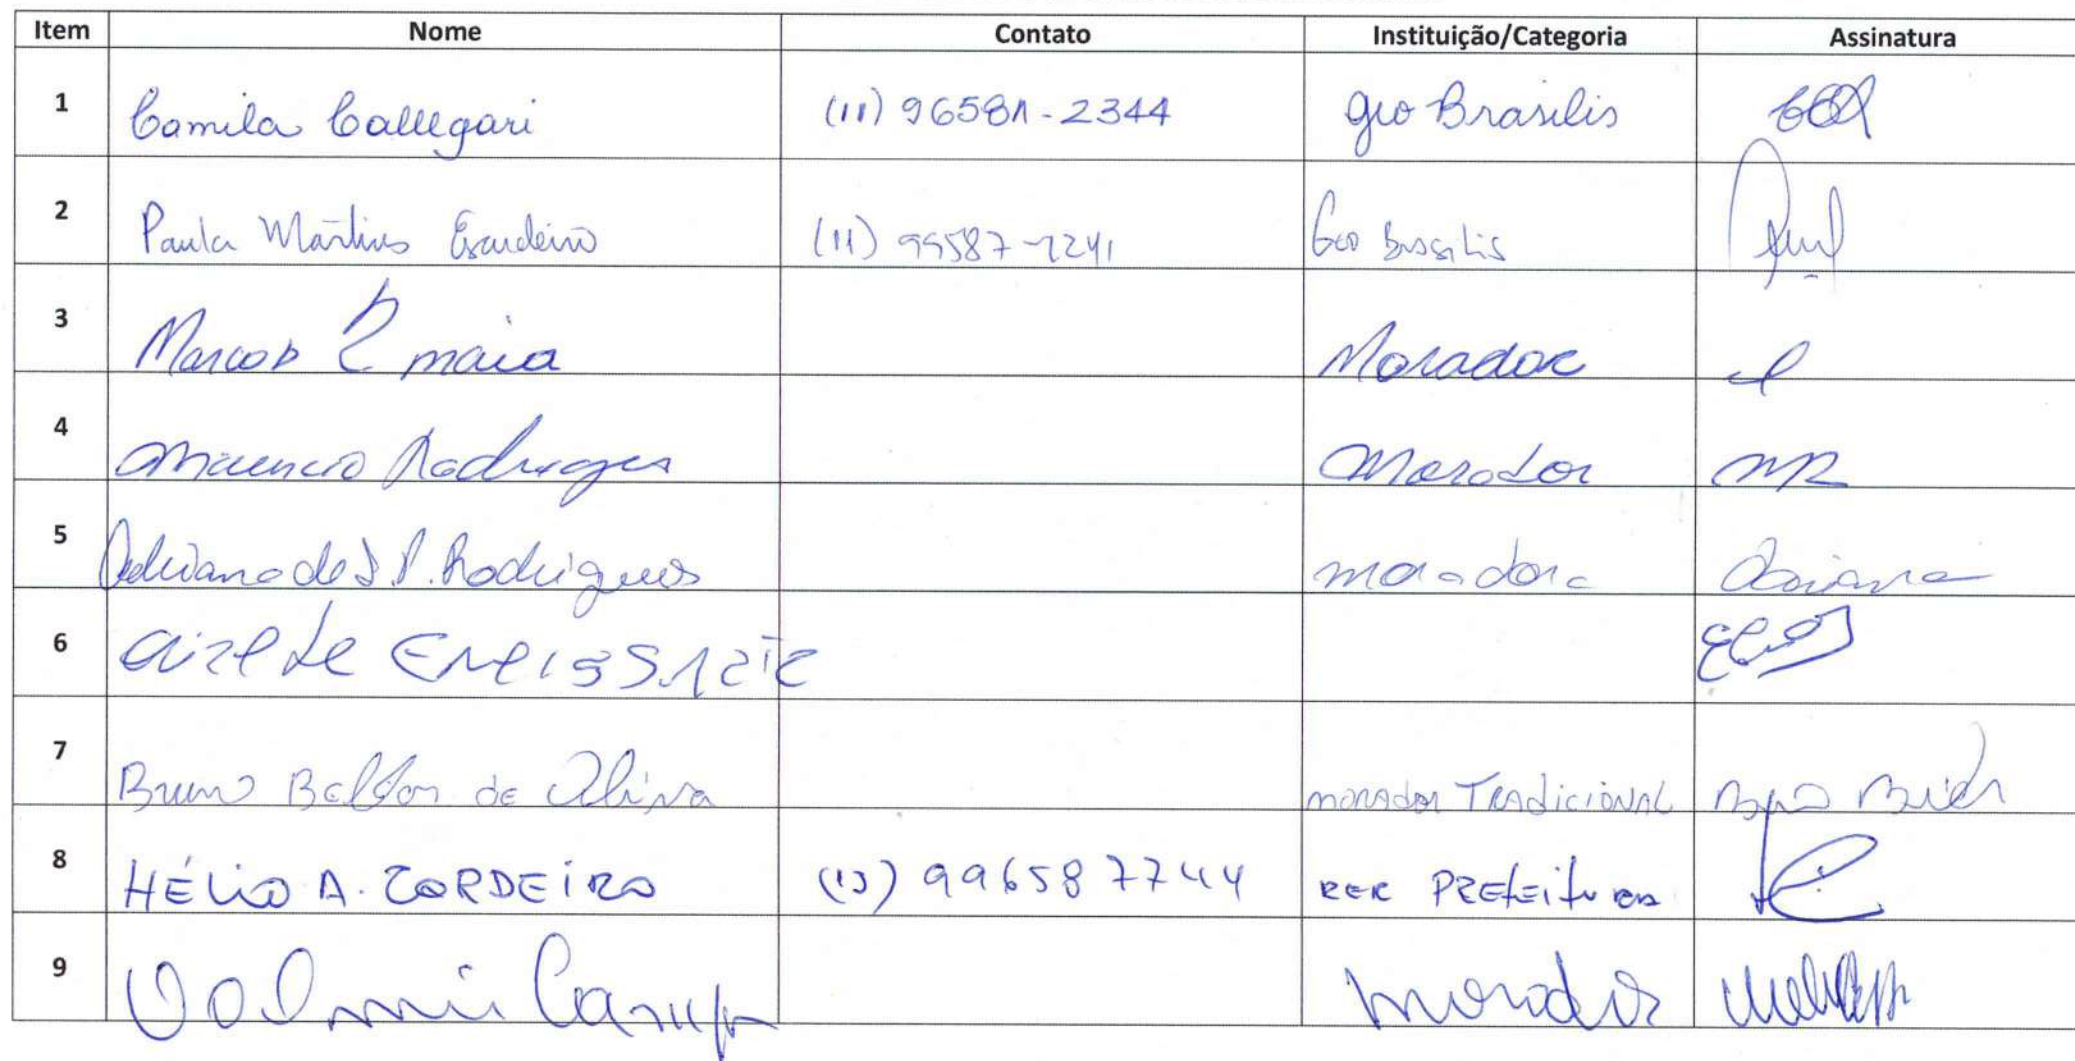 Item Nome Contato Instituição/Categoria Assinatura
1 Camila Callegari (11) 96581-2344 Geo Brasilis
2 Paula Martins (11) 99587-7241 Geo Brasilis
3 Marcos R maia Morador
4 Mauricio Rodrigues Morador
5 de J. P. Rodrigues moradora
6
7 Bruno de Oliva morador TRADICIONAL
8 HÉLIO A. CORDEIRO (13) 996587744 REP PREFEITURA
9 Valmir Campos morador